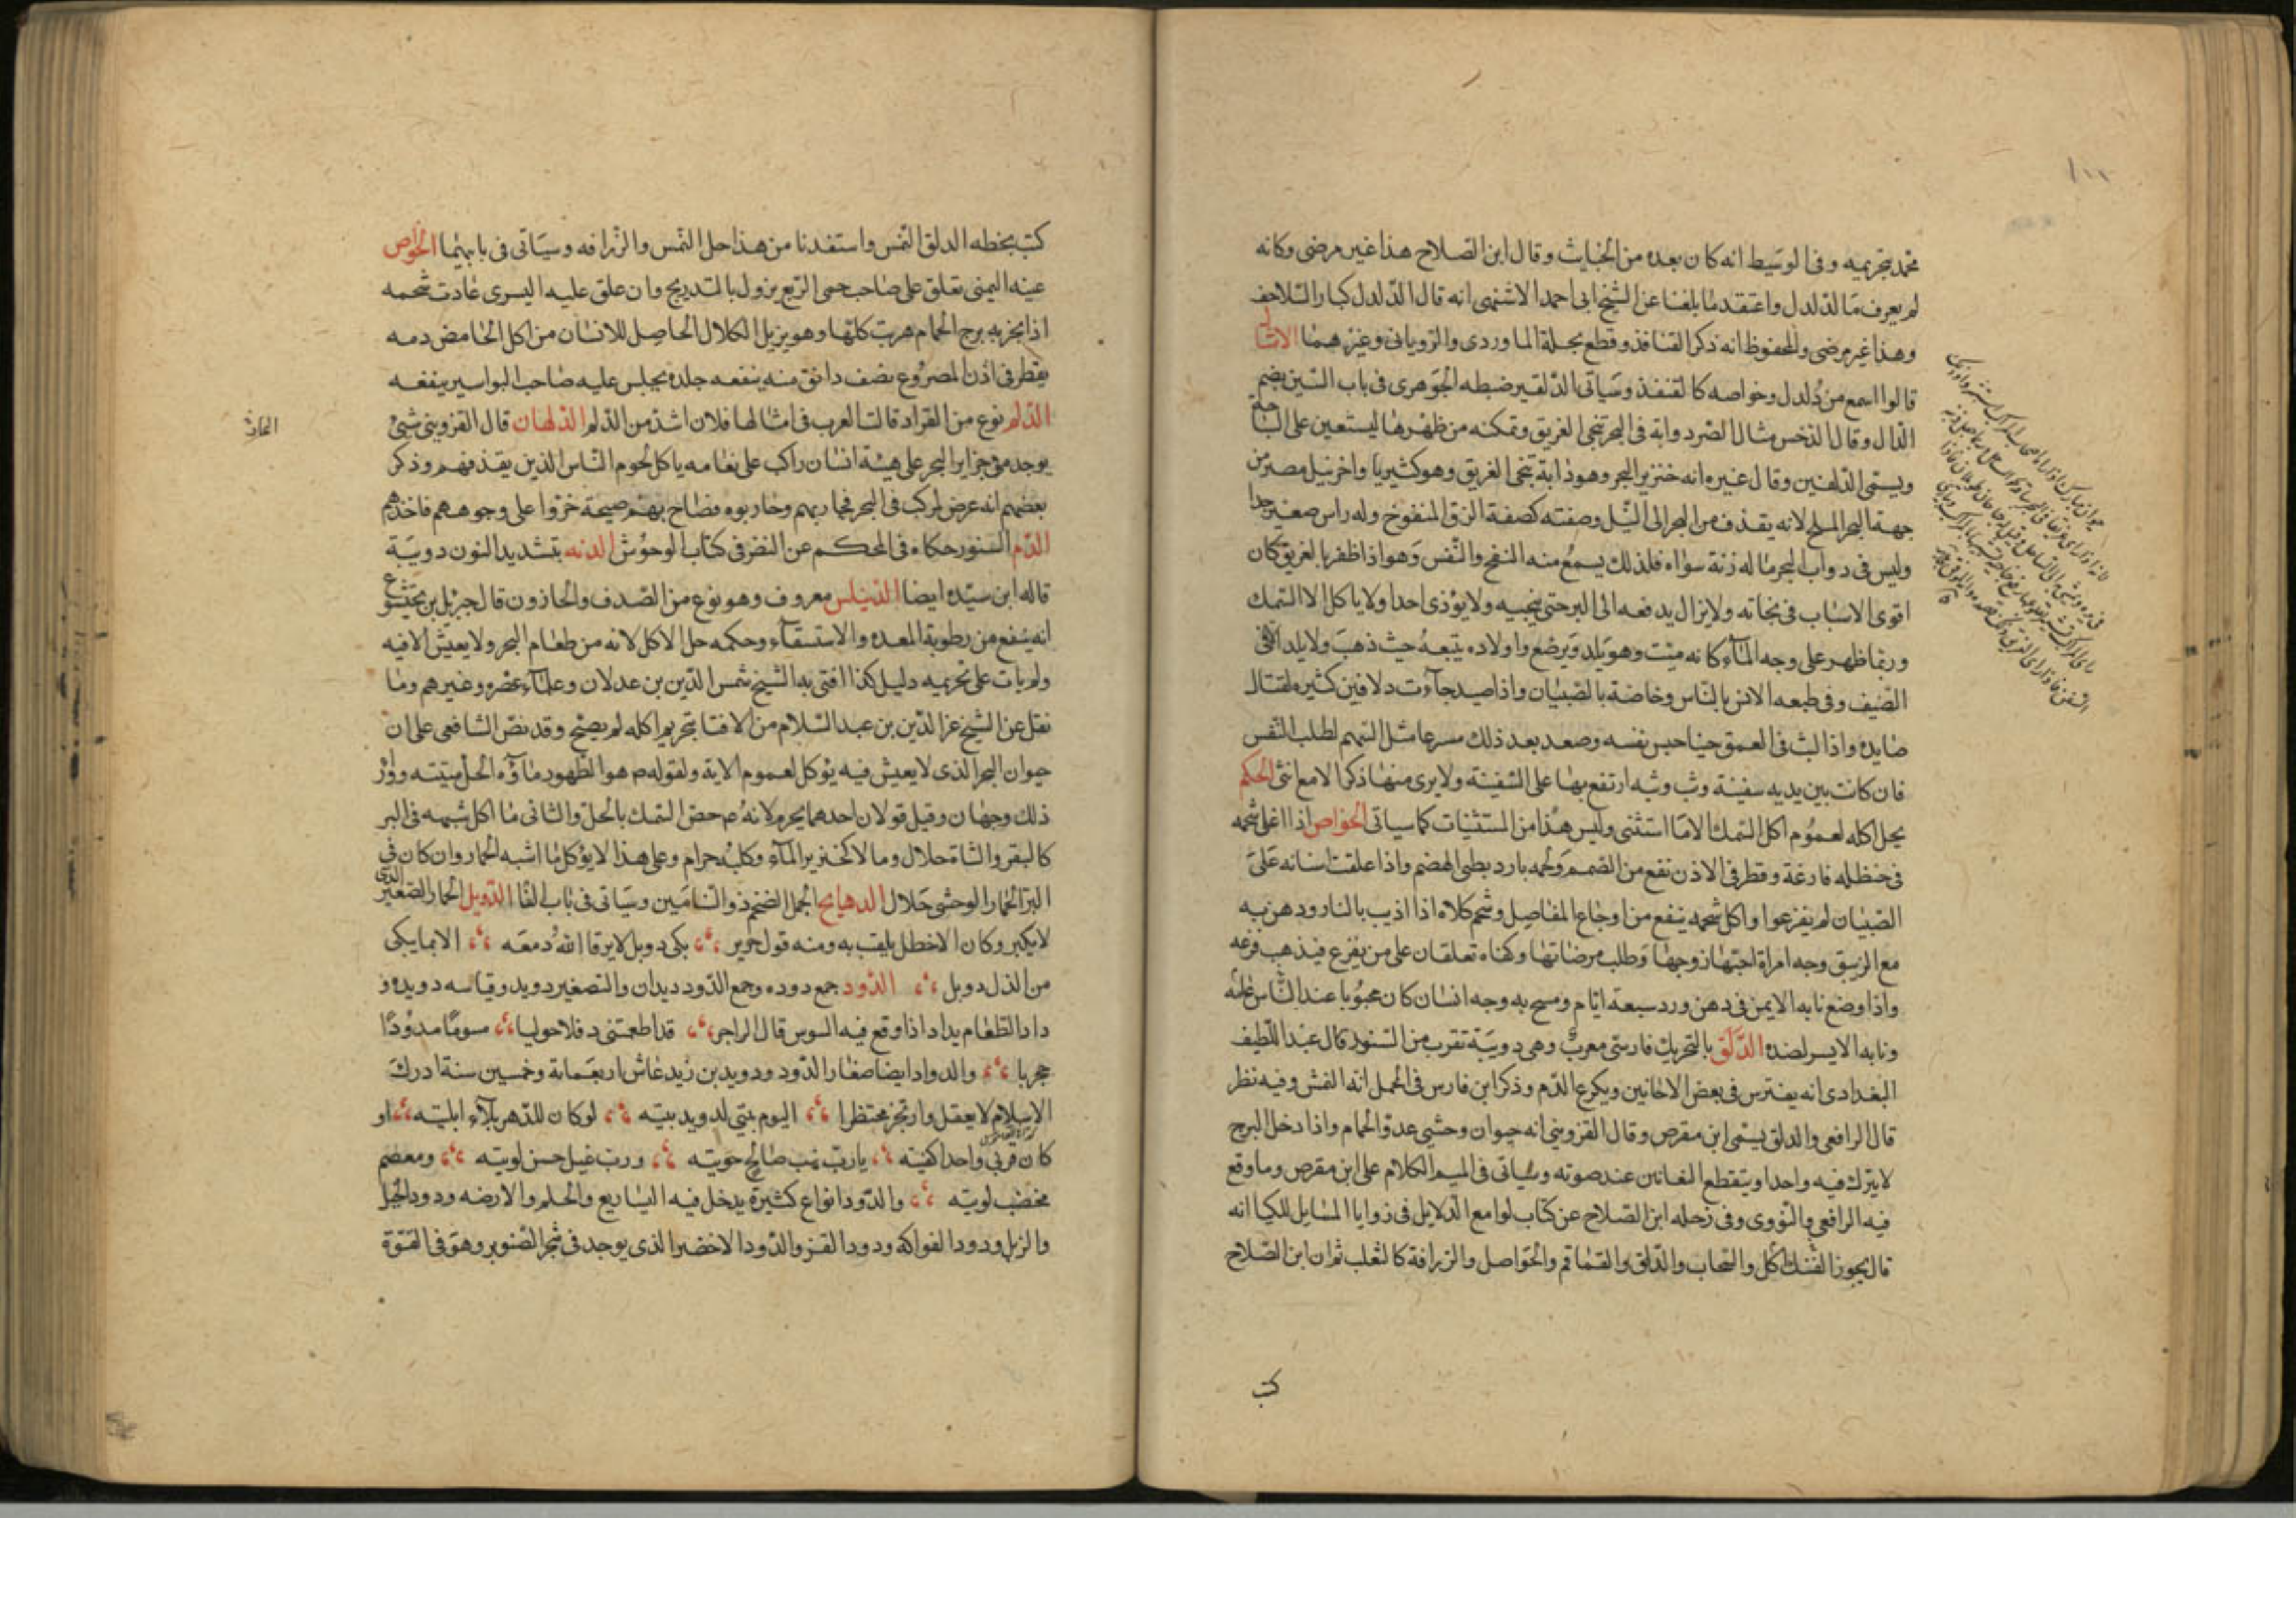 محمد بتحريمه وفى الوسيط انه كان يعده من الخبايث وقال ابن الصلاح هذا غير مرضى وكانه
لم يعرف ما الدلدل واعتقد ما بلغنا عن الشيخ ابى احمد الاشنهى انه قال الدلدل كبار السلاحف
وهذا غير مرضى والمحفوظ انه ذكر القنافذ وقطع بحله الماوردى والرويانى وغيرهما الامثال
قالوا اسمع من دلدل وخواصه كالقنفذ وسياتى الدلفين ضبطه الجوهرى فى باب السين بضم
الدال وقال الدخس مثال الصرد دابة فى البحر تنجى الغريق وتمكنه من ظهرها ليستعين على السباحة
ويسمى الدلفين وقال غيره انه خنزير البحر وهو دابة تنجى الغريق وهو كثير باواخر نيل مصر من
جهة البحر المالح لانه يقذف من البحر الى النيل وصفته كصفة الزق المنفوخ وله راس صغير جدا
وليس فى دواب البحر ما له رئة سواه فلذلك يسمع منه النفخ والنفس وهو اذا ظفر بالغريق كان
اقوى الاسباب فى نجاته ولا يزال يدفعه الى البر حتى ينجيه ولا يؤذى احدا ولا ياكل الا السمك
وربما ظهر على وجه الماء كانه ميت وهو يلد ويرضع واولاده يتبعه حيث ذهب ولا يلد الا فى
الصيف وفى طبعه الانس بالناس وخاصة بالصبيان واذا صيد جاءت دلافين كثيره لقتال
صايده واذا لبث فى العمق حينا حبس نفسه وصعد بعد ذلك مسرعا مثل السهم لطلب النفس
فان كانت بين يديه سفينة وثب وثبه ارتفع بها على السفينة ولا يرى منها ذكر الا مع انثى الحكم
يحل اكله لعموم اكل السمك الا ما استثنى وليس هذا من المستثنيات كما سياتى الخواص اذا اغلى شحمه
فى حنظله فارغة وقطر فى الاذن نفع من الصمم ولحمه بارد بطى الهضم واذا علقت اسنانه على
الصبيان لم يفزعوا واكل شحمه ينفع من اوجاع المفاصل وشحم كلاه اذا اذيب بالنار ودهن به
مع الزيبق وجه امراة احبها زوجها وطلب مرضاتها وكفاه تعلقان على من يفزع فيذهب فزعه
واذا وضع نابه الايمن فى دهن ورد سبعة ايام ومسح به وجه انسان كان محبوبا عند الناس عامة
ونابه الايسر لضده الدلق بالتحريك فارسى معرب وهى دويبة تقرب من السنور قال عبد اللطيف
البغدادى انه يفترس فى بعض الاحايين ويكرع الدم وذكر ابن فارس فى المجمل انه النمس وفيه نظر
قال الرافعى والدلق يسمى ابن مقرض وقال القزوينى انه حيوان وحشى عدو الحمام واذا دخل البرج
لا يترك فيه واحدا ويتقطع الثعابين عند صوته وسياتى فى الميم الكلام على ابن مقرض وما وقع
فيه الرافعى والنووى وفى رحله ابن الصلاح عن كتاب لوامع الدلايل فى زوايا المسايل للكيا انه
قال يجوز اكل الفنك والسنجاب والدلق والقماقم والحواصل والزرافة كالثعلب ثم ان ابن الصلاح
كتب
كتب بخطه الدلق النمس واستفدنا من هذا حل النمس والزرافه وسياتى فى بابهما الخواص
عينه اليمنى تعلق على صاحب حمى الربع يزول بالتدريج وان علق عليه اليسرى عادت شحمه
اذا بخر به برج الحمام هربت كلها وهو يزيل الكلال الحاصل للانسان من اكل الحامض دمه
يقطر فى اذن المصروع نصف دانق منه ينفعه جلده يجلس عليه صاحب البواسير ينفعه
الدلم نوع من القراد قالت العرب فى امثالها فلان اشد من الدلم الدلهان قال القزوينى شئ
يوجد فى جزاير البحر على هيئة انسان راكب على نعامه ياكل لحوم الناس الذين يقذفهم وذكر
بعضهم انه عرض لمركب فى البحر فحاربهم وحاربوه فصاح بهم صيحة خروا على وجوههم فاخذهم
الدم السنور حكاه فى المحكم عن النضر فى كتاب الوحوش الدنه بتشديد النون دويبة
قاله ابن سيده ايضا الدنيلس معروف وهو نوع من الصدف والحلزون قال جبريل بن بختيشوع
انه ينفع من رطوبة المعده والاستسقاء وحكمه حل الاكل لانه من طعام البحر ولا يعيش الا فيه
ولم يات على تحريمه دليل كذا افتى به الشيخ شمس الدين بن عدلان وعلماء عصره وغيرهم وما
نقل عن الشيخ عز الدين بن عبد السلام من الافتا بتحريم اكله لم يصح وقد نص الشافعى على ان
حيوان البحر الذى لا يعيش فيه يؤكل لعموم الاية ولقوله ص هو الطهور ماؤه الحل ميتته ووراء
ذلك وجهان وقيل قولان احدهما يحرم لانه ص خص السمك بالحل والثانى ما اكل شبهه فى البر
كالبقر والشاة حلال وما لا كخنزير الماء وكلبه حرام وعلى هذا لا يؤكل ما اشبه الحمار وان كان فى
البر الحمار الوحشى حلال الدهانج الجمل الضخم ذو السنامين وسياتى فى باب الفا الدوبل الحمار الصغير الذى
لا يكبر وكان الاخطل يلقب به ومنه قول جرير بكى دوبل لا يرقا الله دمعه الا انما يبكى
من الذل دوبل الدود جمع دوده وجمع الدود ديدان والتصغير دويد وقياسه دويده و
داد الطعام يداد اذا وقع فيه السوس قال الراجز قد اطعمتنى دقلا حوليا مسوسا مدودا
حجريا والدواد ايضا صغار الدود ودويد بن زيد عاش اربعمائة وخمسين سنة ادرك
الاسلام لا يعقل وارتجز محتضرا اليوم يبنى لدويد بيته لو كان للدهر بلاء ابليته او
كان قرنى واحدا كفيته يا رب نهب صالح حويته ورب غيل حسن لويته ومعصم
مخضب لويته والدود انواع كثيرة يدخل فيه اليساريع والحلم والارضه ودود الخل
والزبل ودود الفواكه ودود القز والدود الاخضر الذى يوجد فى شجر الصنوبر وهو فى القوة